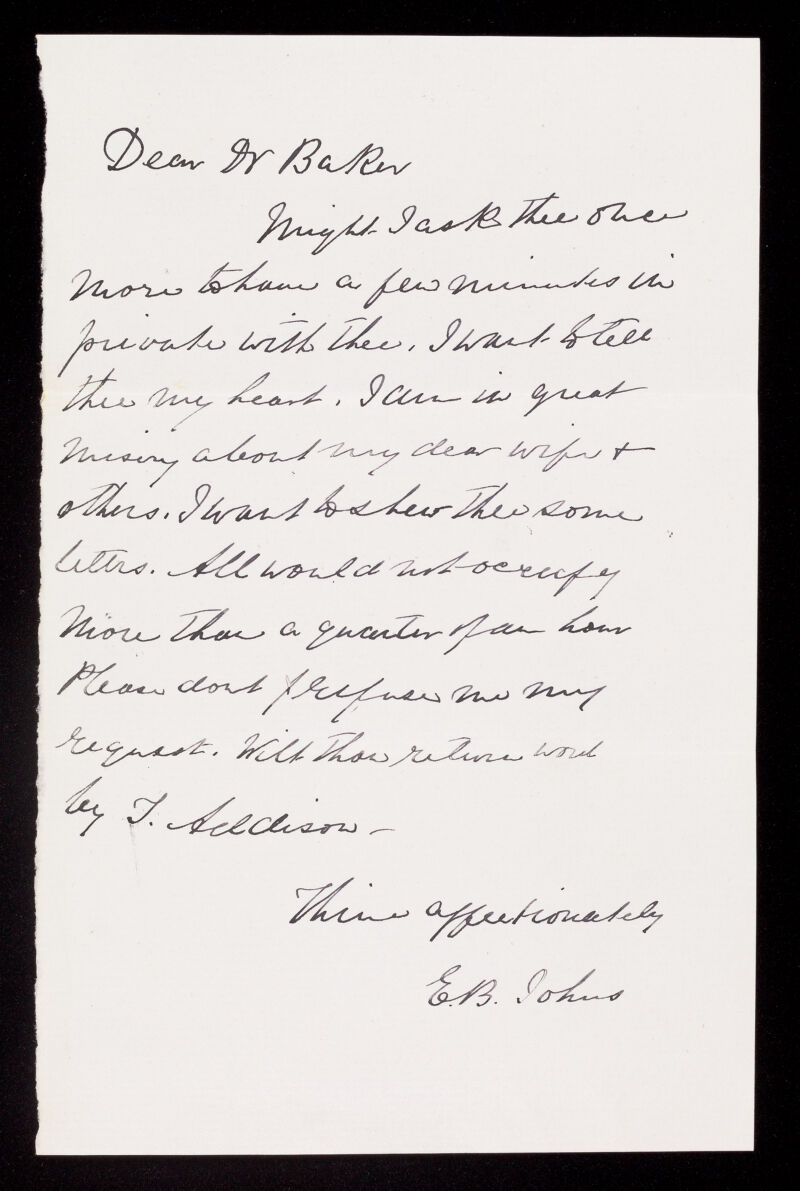 Dear Dr Baker
Might I ask thee once
more to have a few minutes in
private with thee. I want to tell
thee my heart. I am in great
misery about my dear wife +
others. I want to shew thee some
letters. All would not occupy
more than a quarter of an hour
Please dont refuse me my
request. Wilt thou return word
by T. Addison -
Thine affectionately
E.B. Johns